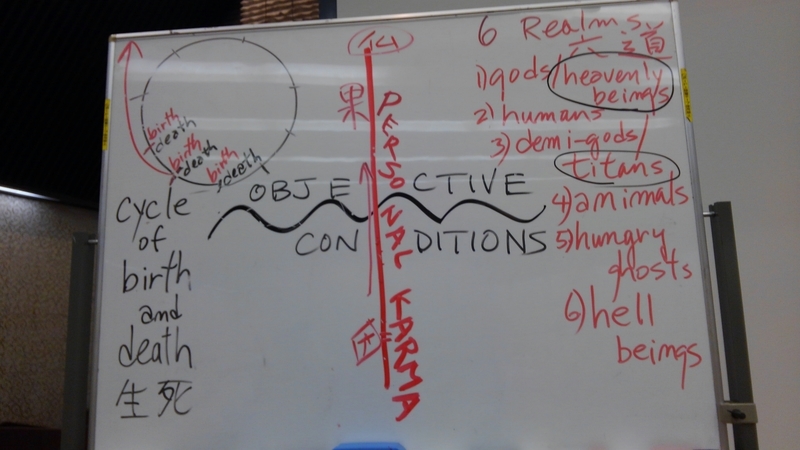 birth
death
birth
death
birth
death
cycle
of
birth
and
death
生死
果
PERSONAL KARMA
OBJECTIVE
CONDITIONS
6 Realms
六道
1) gods/heavenly
beings
2) humans
3) demi-gods/
titans
4) animals
5) hungry
ghosts
6) hell
beings